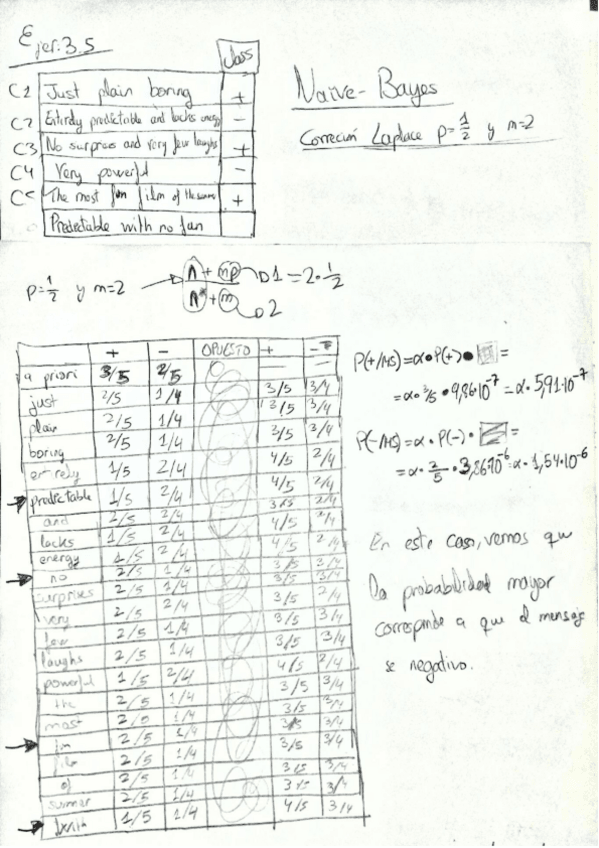 Ejer. 3.5
Class
C1 Just plain boring +
C2 Entirely predictable and lacks energy -
C3 No surprises and very few laughs +
C4 Very powerful -
C5 The most fun film of the summer +
Predectable with no fun
Naive-Bayes
Corrección Laplace p=1/2 y m=2
p=1/2 y m=2 → n + mp → 1 = 2·1/2
n* + m → 2
+ - OPUESTO + -
a priori 3/5 2/5 — —
just 2/5 1/4 3/5 3/4
plain 2/5 1/4 3/5 3/4
boring 2/5 1/4 3/5 3/4
entirely 1/5 2/4 4/5 2/4
predictable 1/5 2/4 4/5 2/4
and 2/5 2/4 3/5 2/4
lacks 1/5 2/4 4/5 2/4
energy 1/5 2/4 4/5 2/4
no 2/5 1/4 3/5 3/4
surprises 2/5 1/4 3/5 3/4
very 2/5 2/4 3/5 2/4
few 2/5 1/4 3/5 3/4
laughs 2/5 1/4 3/5 3/4
powerful 1/5 2/4 4/5 2/4
the 2/5 1/4 3/5 3/4
most 2/5 1/4 3/5 3/4
fun 2/5 1/4 3/5 3/4
film 2/5 1/4 3/5 3/4
of 2/5 1/4 3/5 3/4
summer 2/5 1/4 3/5 3/4
with 1/5 1/4 4/5 3/4
P(+/MS) = α · P(+) · =
= α · 3/5 · 9,86·10⁻⁷ = α · 5,91·10⁻⁷
P(-/MS) = α · P(-) · =
= α · 2/5 · 3,86·10⁻⁶ = α · 1,54·10⁻⁶
En este caso, vemos que
la probabilidad mayor
corresponde a que el mensaje
se negativo.